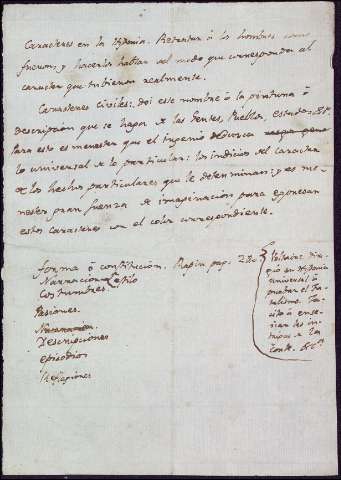 Caracteres en la Historia. Retratar á los hombres como
fueron, y hacerlos hablar del modo que corresponda al
caracter que tubieron realmente.
Caracteres civiles: doi este nombre á la pintura ó
descripcion que se haga de las Gentes, Pueblos, estados &c.
Para esto es menester que el ingenio deduzca
lo universal de lo particular: los indicios del caracter
de los hechos particulares que le determinan; y es me-
nester gran fuerza de imaginacion para expresar
estos caracteres con el color correspondiente.
forma ó constitucion. Rapin pag. 280
Narracion Estilo
Costumbres.
Pasiones.
Narracion
Descripciones
episodios
Reflexiones
Voltaire diri-
gió su Historia
universal á
pintar el fa-
natismo. Ta-
cito á ense-
ñar las in-
trigas de las
&c.a